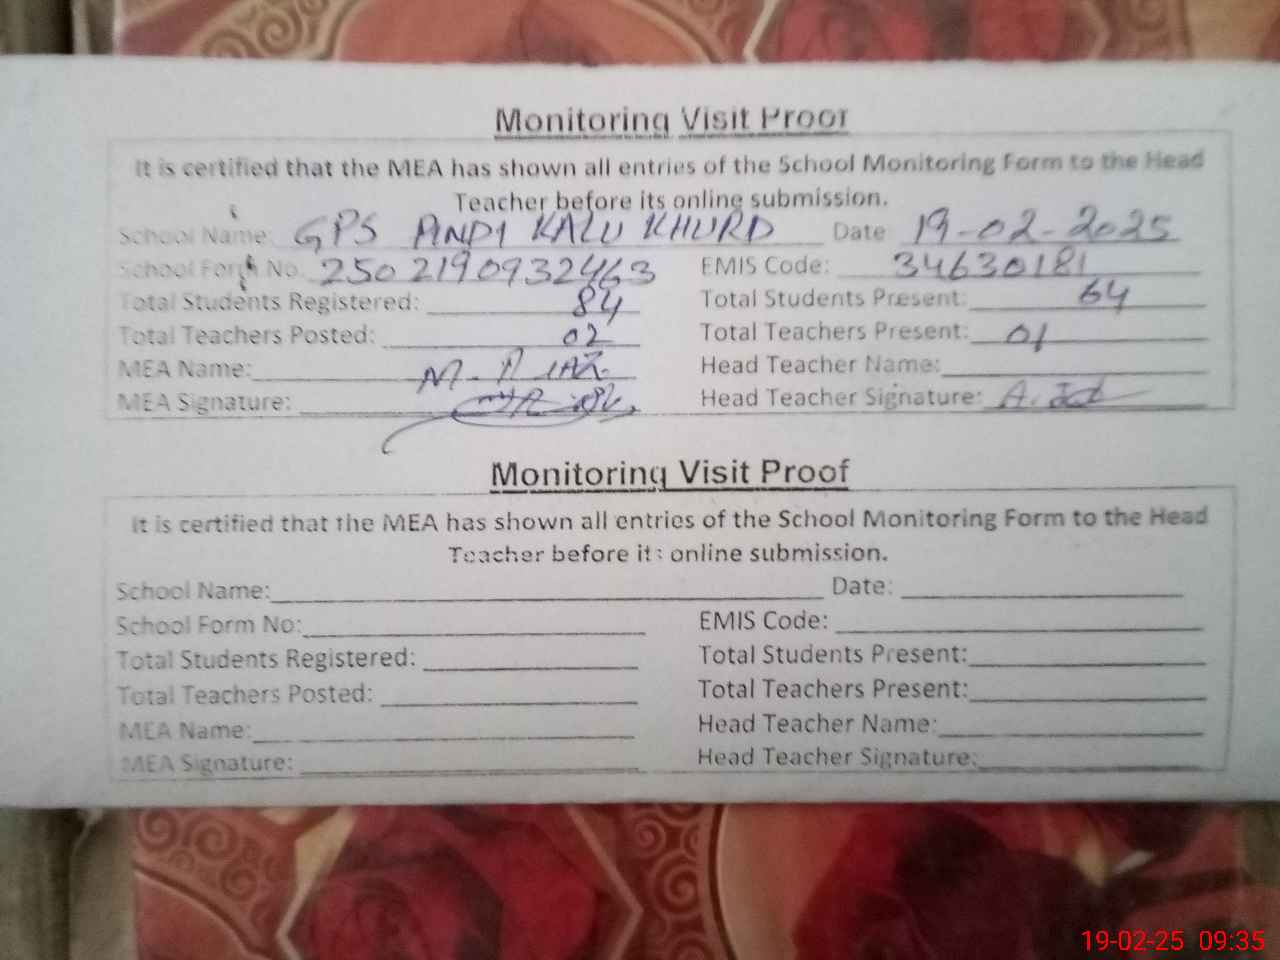 Monitoring Visit Proof
It is certified that the MEA has shown all entries of the School Monitoring Form to the Head
Teacher before its online submission.
School Name: GPS PINDI KALU KHURD Date 19-02-2025
School Form No. 2502190932463 EMIS Code: 34630181
Total Students Registered: 84 Total Students Present: 64
Total Teachers Posted: 02 Total Teachers Present: 01
MEA Name: M. Riaz Head Teacher Name:
MEA Signature: Head Teacher Signature:
Monitoring Visit Proof
It is certified that the MEA has shown all entries of the School Monitoring Form to the Head
Teacher before its online submission.
School Name: Date:
School Form No: EMIS Code:
Total Students Registered: Total Students Present:
Total Teachers Posted: Total Teachers Present:
MEA Name: Head Teacher Name:
MEA Signature: Head Teacher Signature:
19-02-25 09:35